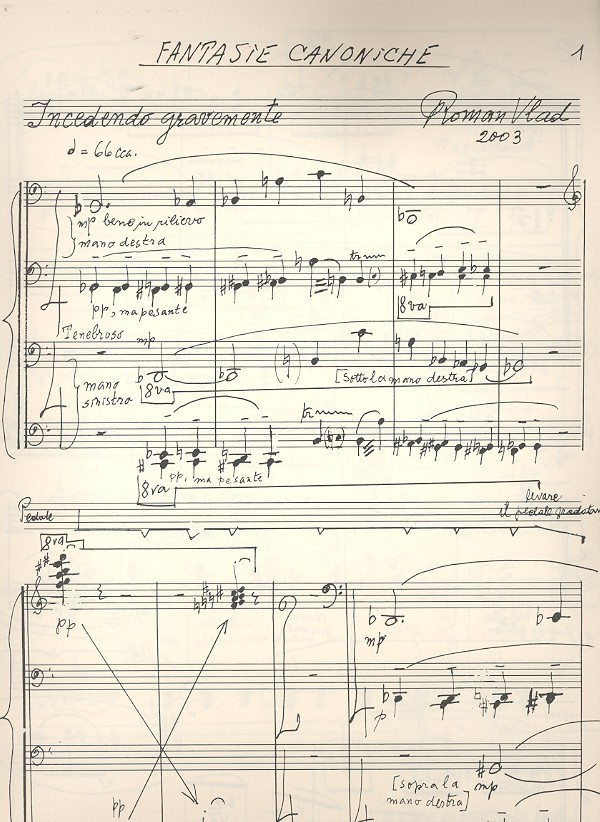 FANTASIE CANONICHE
1
Incedendo gravemente
Roman Vlad
2003
= 66 cca.
mp bene in rilievo
mano destra
pp, ma pesante
8va
Tenebroso
mp
mano
sinistra
8va
[Sotto la mano destra]
pp, ma pesante
8va
Pedale
levare
il pedale
8va
pp
mp
p
pp
[sopra la
mano destra]
mp